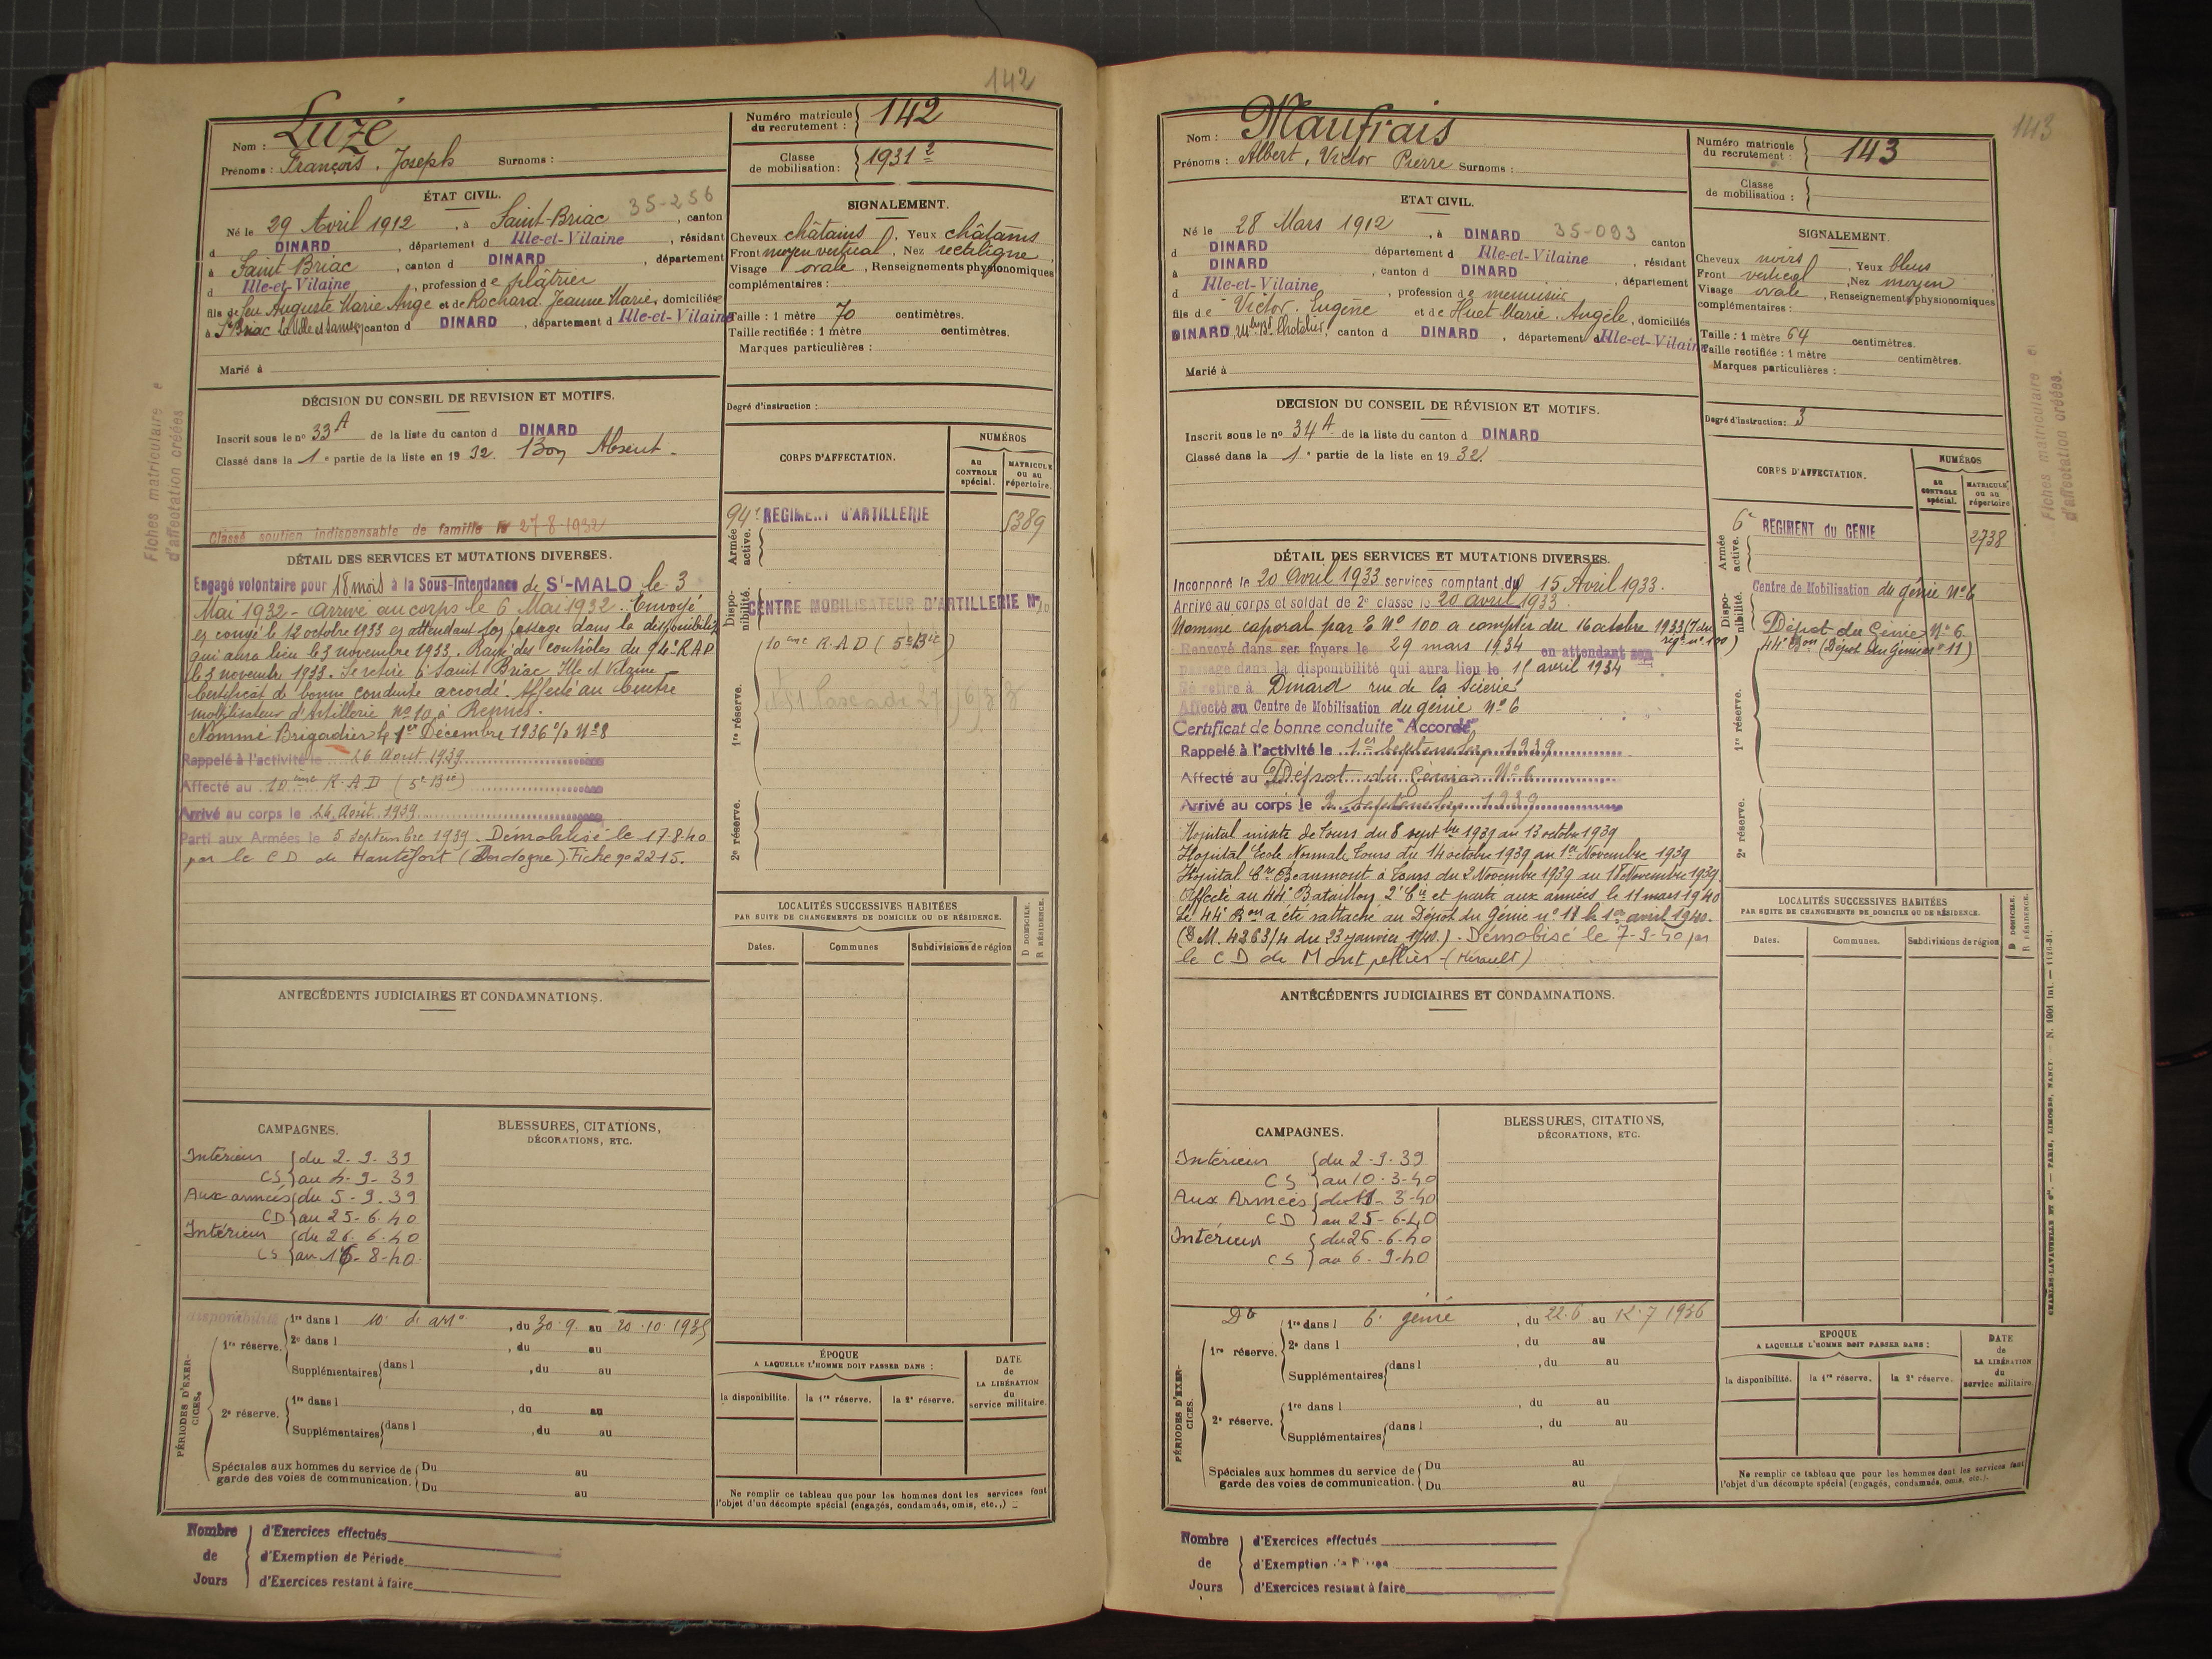 142
Nom : Luzé
Prénoms : François, Joseph Surnoms :
Numéro matricule du recrutement : 142
Classe de mobilisation : 1931 2
ÉTAT CIVIL.
35-256
Né le 29 Avril 1912, à Saint-Briac, canton
d DINARD, département d Ille-et-Vilaine, résidant
à Saint Briac, canton d DINARD, département
d Ille-et-Vilaine, profession de plâtrier
fils de feu Auguste Marie Ange et de Rochard Jeanne Marie, domiciliés
à St Briac, canton d DINARD, département d Ille-et-Vilaine
Marié à
SIGNALEMENT.
Cheveux châtains, Yeux châtains
Front moyen vertical, Nez rectiligne
Visage ovale, Renseignements physionomiques
complémentaires :
Taille : 1 mètre 70 centimètres.
Taille rectifiée : 1 mètre centimètres.
Marques particulières :
Degré d'instruction :
DÉCISION DU CONSEIL DE REVISION ET MOTIFS.
Inscrit sous le nº 33 A de la liste du canton d DINARD
Classé dans la 1e partie de la liste en 1932. Bon Absent.
Classé soutien indispensable de famille le 27-8-1932
DÉTAIL DES SERVICES ET MUTATIONS DIVERSES.
Engagé volontaire pour 18 mois à la Sous-Intendance de St-MALO le 3
Mai 1932 - arrivé au corps le 6 Mai 1932. Envoyé
en congé le 12 octobre 1933 en attendant son passage dans la disponibilité
qui aura lieu le 3 novembre 1933. Rayé des contrôles du 94e R.A.D
le 3 novembre 1933. Se retire à Saint Briac Ille et Vilaine
Certificat de bonne conduite accordé. Affecté au Centre
mobilisateur d'Artillerie nº 10 à Rennes.
Nommé Brigadier le 1er Décembre 1936 O/ Nº 8
Rappelé à l'activité le 26 Aout 1939
Affecté au 10ème R.A.D (5e Bie)
Arrivé au corps le 26 Août 1939
Parti aux Armées le 5 Septembre 1939. Démobilisé le 17-8-40
par le C D de Hautefort (Dordogne). Fiche nº 2215.
CORPS D'AFFECTATION.
NUMÉROS
au CONTROLE spécial.
MATRICULE ou au répertoire.
Armée active.
94e REGIMENT d'ARTILLERIE 5389
Disponibilité.
CENTRE MOBILISATEUR D'ARTILLERIE Nº 10
10ème R.A.D (5e Bie)
1re réserve.
2e réserve.
LOCALITÉS SUCCESSIVES HABITÉES
PAR SUITE DE CHANGEMENTS DE DOMICILE OU DE RÉSIDENCE.
Dates. Communes Subdivisions de région
D DOMICILE.
R RÉSIDENCE.
ANTÉCÉDENTS JUDICIAIRES ET CONDAMNATIONS.
CAMPAGNES.
Intérieur du 2-9-39
CS au 4-9-39
Aux armées du 5-9-39
CD au 25-6-40
Intérieur du 26-6-40
CS au 16-8-40
BLESSURES, CITATIONS,
DÉCORATIONS, ETC.
PÉRIODES D'EXERCICES.
disponibilité
1re réserve.
1re dans l 10e d'arie, du 30.9. au 20.10.1935
2e dans l, du au
Supplémentaires dans l, du au
2e réserve.
1re dans l, du au
Supplémentaires dans l, du au
Spéciales aux hommes du service de garde des voies de communication. Du au
Du au
ÉPOQUE
A LAQUELLE L'HOMME DOIT PASSER DANS :
la disponibilité. la 1re réserve. la 2e réserve.
DATE de LA LIBÉRATION du service militaire.
Ne remplir ce tableau que pour les hommes dont les services font
l'objet d'un décompte spécial (engagés, condamnés, omis, etc.,)
Nombre de Jours
d'Exercices effectués
d'Exemption de Période
d'Exercices restant à faire
Fiches matriculaire e
d'affectation créées
143
Nom : Maufrais
Prénoms : Albert, Victor Pierre Surnoms :
Numéro matricule du recrutement : 143
Classe de mobilisation :
ETAT CIVIL.
Né le 28 Mars 1912, à DINARD 35-093 canton
d DINARD département d Ille-et-Vilaine, résidant
à DINARD, canton d DINARD, département
d Ille-et-Vilaine, profession de menuisier
fils de Victor. Eugène et de Huet Marie. Angèle, domiciliés
DINARD, canton d DINARD, département d Ille-et-Vilaine
Marié à
SIGNALEMENT.
Cheveux noirs, Yeux bleus
Front vertical, Nez moyen
Visage ovale, Renseignements physionomiques
complémentaires :
Taille : 1 mètre 64 centimètres.
Taille rectifiée : 1 mètre centimètres.
Marques particulières :
Degré d'instruction : 3
DÉCISION DU CONSEIL DE RÉVISION ET MOTIFS.
Inscrit sous le nº 34 A de la liste du canton d DINARD
Classé dans la 1e partie de la liste en 1932.
DÉTAIL DES SERVICES ET MUTATIONS DIVERSES.
Incorporé le 20 Avril 1933 services comptant du 15 Avril 1933.
Arrivé au corps et soldat de 2e classe le 20 avril 1933.
Nommé caporal par E Nº 100 à compter du 16 octobre 1933
Renvoyé dans ses foyers le 29 mars 1934 en attendant son
passage dans la disponibilité qui aura lieu le 15 avril 1934
Se retire à Dinard rue de la Scierie
Affecté au Centre de Mobilisation du génie nº 6
Certificat de bonne conduite "Accordé"
Rappelé à l'activité le 1er Septembre 1939
Affecté au Dépot du Génie Nº 6
Arrivé au corps le 2 Septembre 1939
Hopital mixte de Tours du 8 septbre 1939 au 13 octobre 1939
Hopital Ecole Normale Tours du 14 octobre 1939 au 1er Novembre 1939
Hopital Cre Beaumont à Tours du 2 Novembre 1939 au 18 Novembre 1939
Affecté au 44e Bataillon 2e Cie et parti aux armées le 11 mars 1940
Le 44e Bon a été rattaché au Dépot du Génie nº 11 le 1er avril 1940.
(D M. 4363/4 du 23 janvier 1940.). Démobisé le 7-9-40 par
le C D de Montpellier - (Hérault)
CORPS D'AFFECTATION.
NUMÉROS
au CONTROLE spécial.
MATRICULE ou au répertoire
Armée active.
6e REGIMENT du GENIE 2738
Disponibilité.
Centre de Mobilisation du génie Nº 6
Dépot du Génie Nº 6.
44e Bon (Dépot du Génie nº 11)
1re réserve.
2e réserve.
LOCALITÉS SUCCESSIVES HABITÉES
PAR SUITE DE CHANGEMENTS DE DOMICILE OU DE RÉSIDENCE.
Dates. Communes. Subdivisions de région
D DOMICILE.
R RÉSIDENCE.
ANTÉCÉDENTS JUDICIAIRES ET CONDAMNATIONS.
CAMPAGNES.
Intérieur du 2-9-39
CS au 10-3-40
Aux Armées du 11-3-40
CD au 25-6-40
Intérieur du 26-6-40
CS au 6-9-40
BLESSURES, CITATIONS,
DÉCORATIONS, ETC.
PÉRIODES D'EXERCICES.
Dté
1re réserve.
1re dans l 6e génie, du 22.6 au 12.7 1936
2e dans l, du au
Supplémentaires dans l, du au
2e réserve.
1re dans l, du au
Supplémentaires dans l, du au
Spéciales aux hommes du service de garde des voies de communication. Du au
Du au
EPOQUE
A LAQUELLE L'HOMME DOIT PASSER DANS :
la disponibilité. la 1re réserve. la 2e réserve.
DATE de LA LIBÉRATION du service militaire.
Ne remplir ce tableau que pour les hommes dont les services font
l'objet d'un décompte spécial (engagés, condamnés, omis, etc.).
Nombre de Jours
d'Exercices effectués
d'Exemption
d'Exercices restant à faire
Fiches matriculaire e
d'affectation créées.
CHARLES-LAVAUZELLE ET Cie. — PARIS, LIMOGES, NANCY